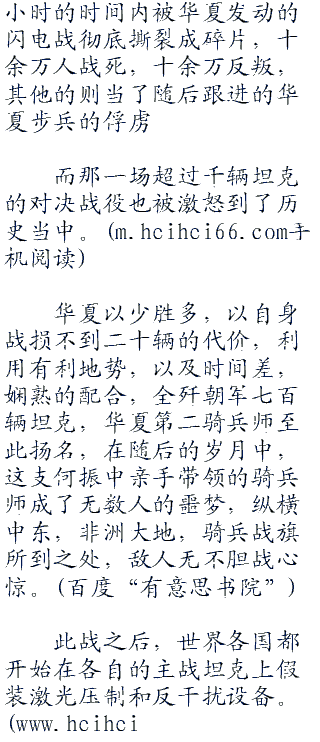 小时的时间内被华夏发动的
闪电战彻底撕裂成碎片，十
余万人战死，十余万反叛，
其他的则当了随后跟进的华
夏步兵的俘虏
而那一场超过千辆坦克
的对决战役也被激怒到了历
史当中。(m.hcihci66.com手
机阅读)
华夏以少胜多，以自身
战损不到二十辆的代价，利
用有利地势，以及时间差，
娴熟的配合，全歼朝军七百
辆坦克，华夏第二骑兵师至
此扬名，在随后的岁月中，
这支何振中亲手带领的骑兵
师成了无数人的噩梦，纵横
中东，非洲大地，骑兵战旗
所到之处，敌人无不胆战心
惊。(百度“有意思书院”)
此战之后，世界各国都
开始在各自的主战坦克上假
装激光压制和反干扰设备。
(www.hcihci